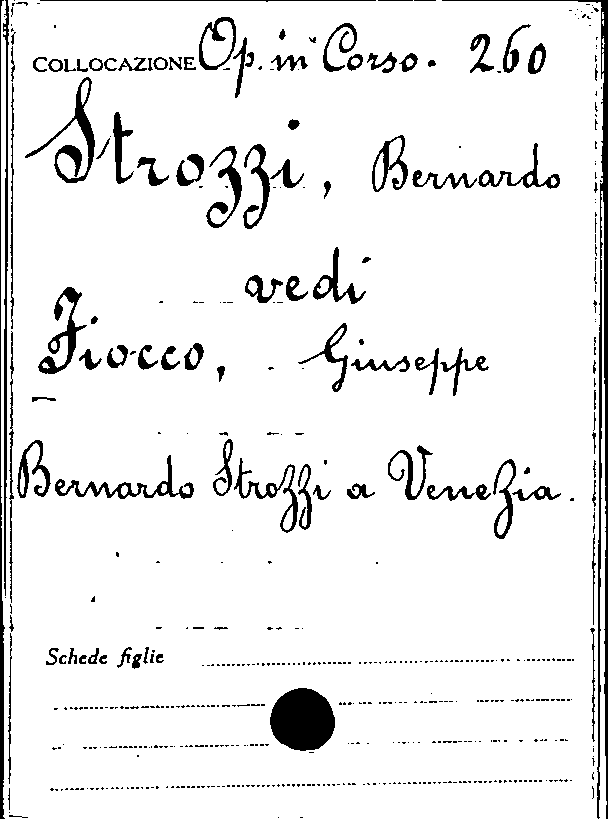 COLLOCAZIONE Op. in Corso. 260
Strozzi, Bernardo
vedi
Fiocco, Giuseppe
Bernardo Strozzi a Venezia.
Schede figlie